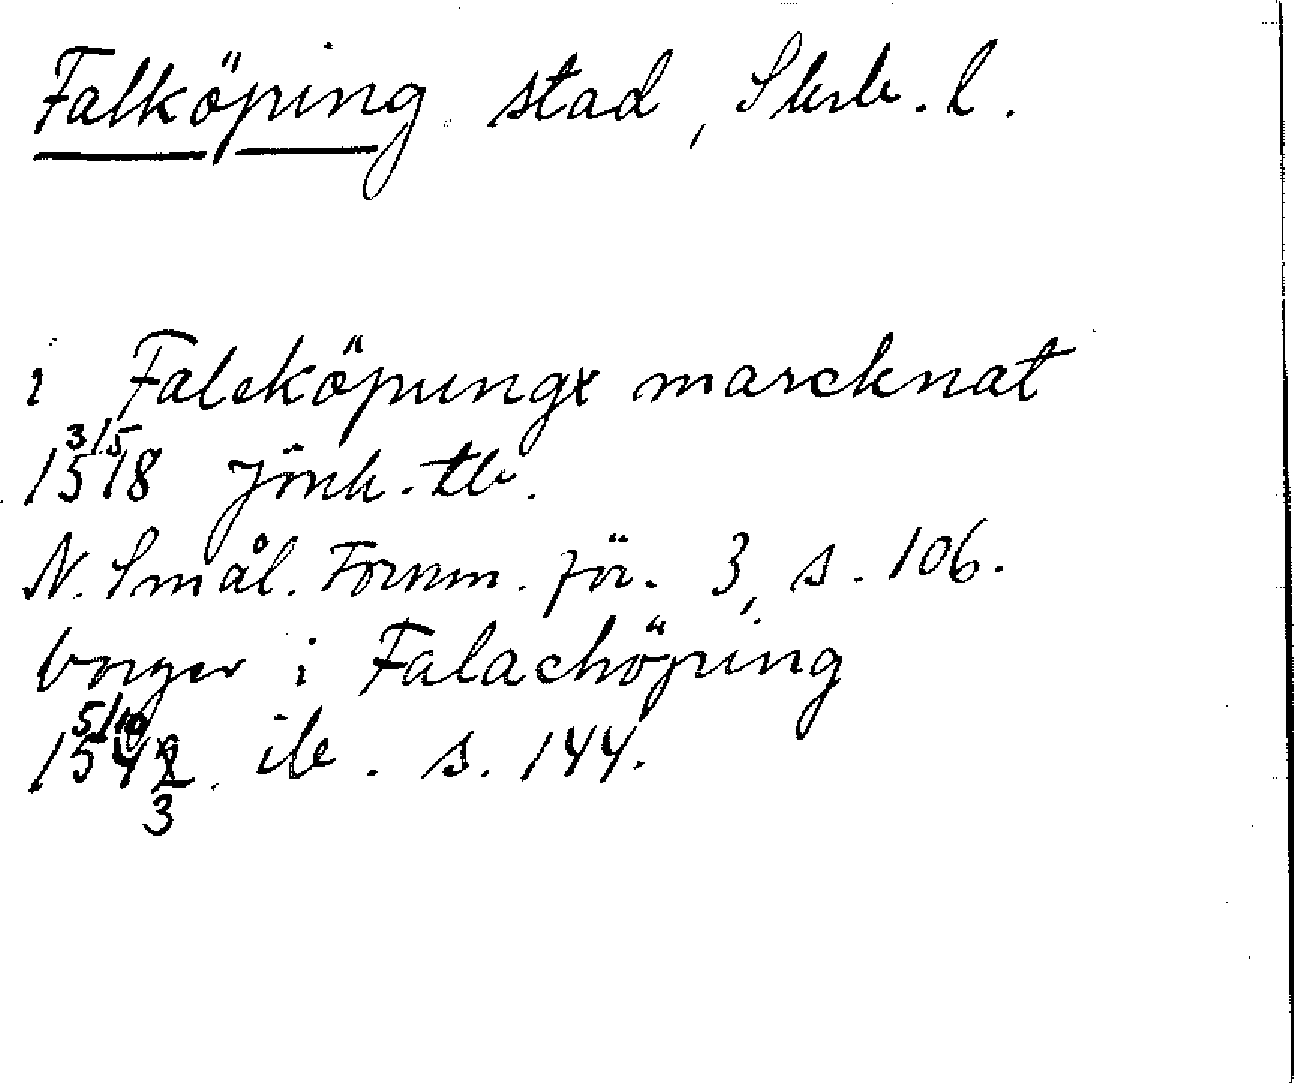 Falköping stad, Skrb. l.
i Faleköpungx marcknat
3/5 1518 Jönk. tb.
N. Smål. Fornm. för. 3, s. 106.
borger i Falachöping
5/10 1542 3. ib. s. 144.